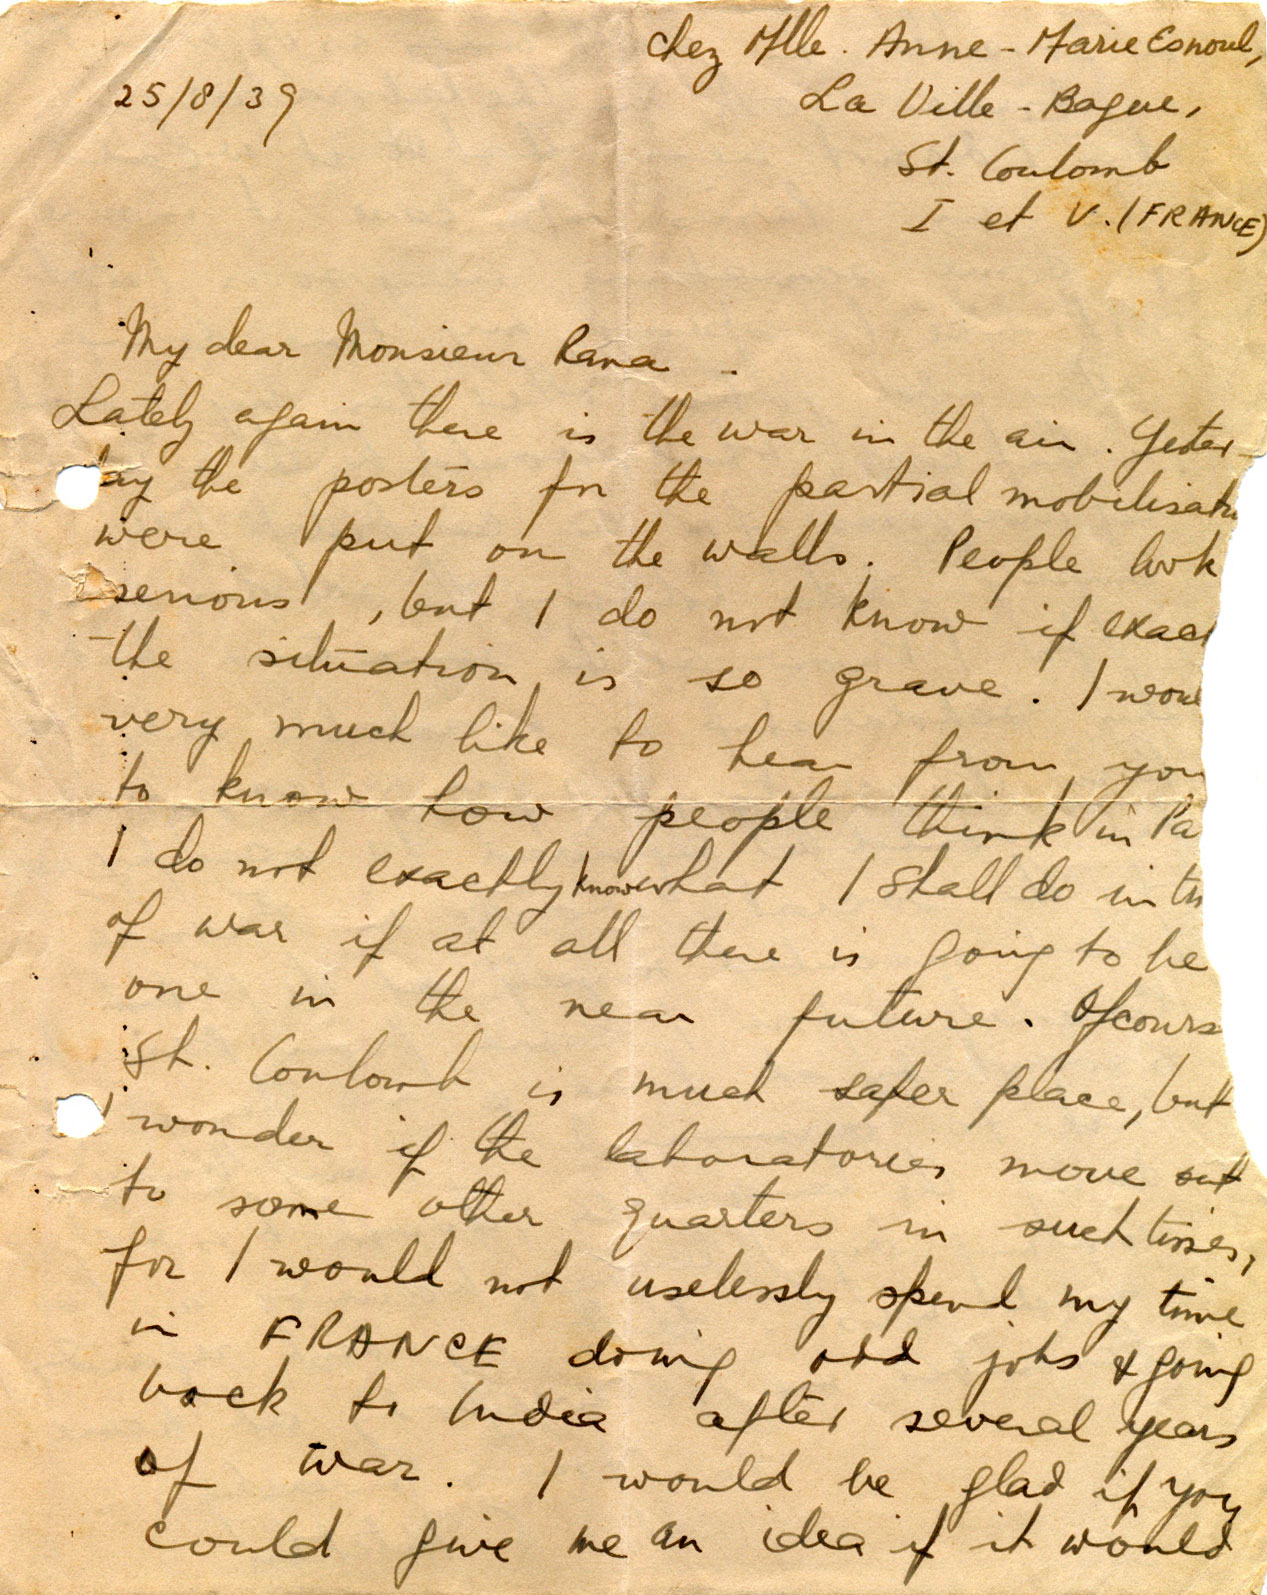 25/8/39
chez Mlle. Anne-Marie Esnoul,
La Ville-Bague,
St. Coulomb
I et V. (FRANCE)
My dear Monsieur Rana.
Lately again there is the war in the air. Yester-
day the posters for the partial mobilisati
were put on the walls. People look
serious, but I do not know if exact
the situation is so grave. I woul
very much like to hear from you
to know how people think in Pa
I do not exactly know what I shall do in
of war if at all there is going to be
one in the near future. Ofcours
St. Coulomb is much safer place, but
I wonder if the laboratories move out
to some other quarters in such times,
for I would not uselessly spend my time
in FRANCE doing odd jobs & going
back to India after several years
of war. I would be glad if you
could give me an idea if it would